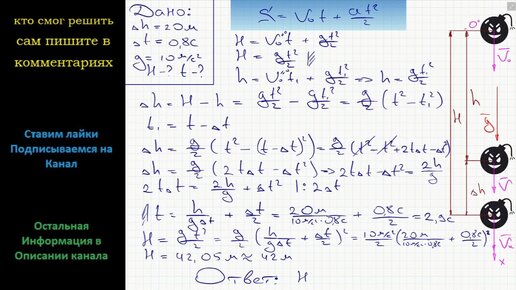 кто смог решить
сам пишите в
комментариях
Ставим лайки
Подписываемся на
Канал
Остальная
Информация в
Описании канала
Дано:
Δh = 20м
Δt = 0,8с
g = 10 м/с²
H - ? t - ?
S = V₀t + at²/2
H = V₀t + gt²/2
H = gt²/2
h = V₀t₁ + gt₁²/2 ⇒ h = gt₁²/2
Δh = H - h = gt²/2 - gt₁²/2 = g/2 (t² - t₁²)
t₁ = t - Δt
Δh = g/2 (t² - (t - Δt)²) = g/2 (t² - t² + 2tΔt - Δt²)
Δh = g/2 (2tΔt - Δt²) ⇒ 2tΔt - Δt² = 2h/g
2tΔt = 2h/g + Δt² | : 2Δt
t = h/gΔt + Δt/2 = 20м/10м/с²·0,8с + 0,8с/2 = 2,9с
H = gt²/2 = g/2 (h/gΔt + Δt/2)² = 10м/с²/2 (20м/10м/с²·0,8с + 0,8с/2)²
H = 42,05м ≈ 42м
Ответ: H
0
V₀
H
h
g
V
Δh
x